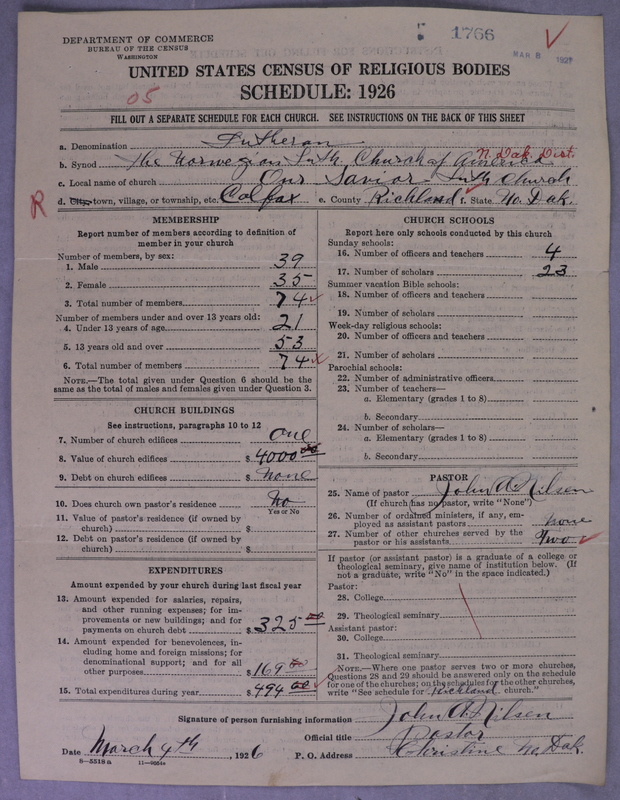 1766
MAR 8 1927
DEPARTMENT OF COMMERCE
BUREAU OF THE CENSUS
WASHINGTON
UNITED STATES CENSUS OF RELIGIOUS BODIES
SCHEDULE: 1926
05
FILL OUT A SEPARATE SCHEDULE FOR EACH CHURCH. SEE INSTRUCTIONS ON THE BACK OF THIS SHEET
a. Denomination Lutheran
b. Synod The Norwegian Luth. Church of America N. Dak. Dist.
c. Local name of church Our Savior Luth Church
R d. City, town, village, or township, etc. Colfax e. County Richland f. State No. Dak.
MEMBERSHIP
Report number of members according to definition of
member in your church
Number of members, by sex:
1. Male 39
2. Female 35
3. Total number of members 74
Number of members under and over 13 years old:
4. Under 13 years of age 21
5. 13 years old and over 53
6. Total number of members 74
NOTE.—The total given under Question 6 should be the
same as the total of males and females given under Question 3.
CHURCH BUILDINGS
See instructions, paragraphs 10 to 12
7. Number of church edifices one
8. Value of church edifices $ 4000 00
9. Debt on church edifices $ none
10. Does church own pastor's residence No
Yes or No
11. Value of pastor's residence (if owned by
church) $
12. Debt on pastor's residence (if owned by
church) $
EXPENDITURES
Amount expended by your church during last fiscal year
13. Amount expended for salaries, repairs,
and other running expenses; for im-
provements or new buildings; and for
payments on church debt $ 325 00
14. Amount expended for benevolences, in-
cluding home and foreign missions; for
denominational support; and for all
other purposes $ 169 00
15. Total expenditures during year $ 494 00
CHURCH SCHOOLS
Report here only schools conducted by this church
Sunday schools:
16. Number of officers and teachers 4
17. Number of scholars 23
Summer vacation Bible schools:
18. Number of officers and teachers
19. Number of scholars
Week-day religious schools:
20. Number of officers and teachers
21. Number of scholars
Parochial schools:
22. Number of administrative officers
23. Number of teachers—
a. Elementary (grades 1 to 8)
b. Secondary
24. Number of scholars—
a. Elementary (grades 1 to 8)
b. Secondary
PASTOR
25. Name of pastor John A. Nilsen
(If church has no pastor, write "None")
26. Number of ordained ministers, if any, em-
ployed as assistant pastors none
27. Number of other churches served by the
pastor or his assistants Two
If pastor (or assistant pastor) is a graduate of a college or
theological seminary, give name of institution below. (If
not a graduate, write "No" in the space indicated.)
Pastor:
28. College
29. Theological seminary
Assistant pastor:
30. College
31. Theological seminary
NOTE.—Where one pastor serves two or more churches,
Questions 28 and 29 should be answered only on the schedule
for one of the churches; on the schedules for the other churches,
write "See schedule for Richland church."
Signature of person furnishing information John A. Nilsen
Official title Pastor
Date March 4th, 1926 P. O. Address Christine No. Dak.
8—5518 a